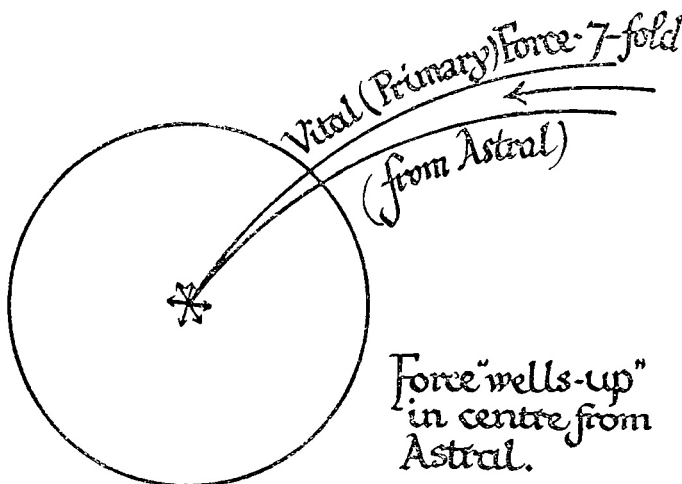 Vital (Primary) Force·7-fold
(from Astral)
Force "wells-up"
in centre from
Astral.